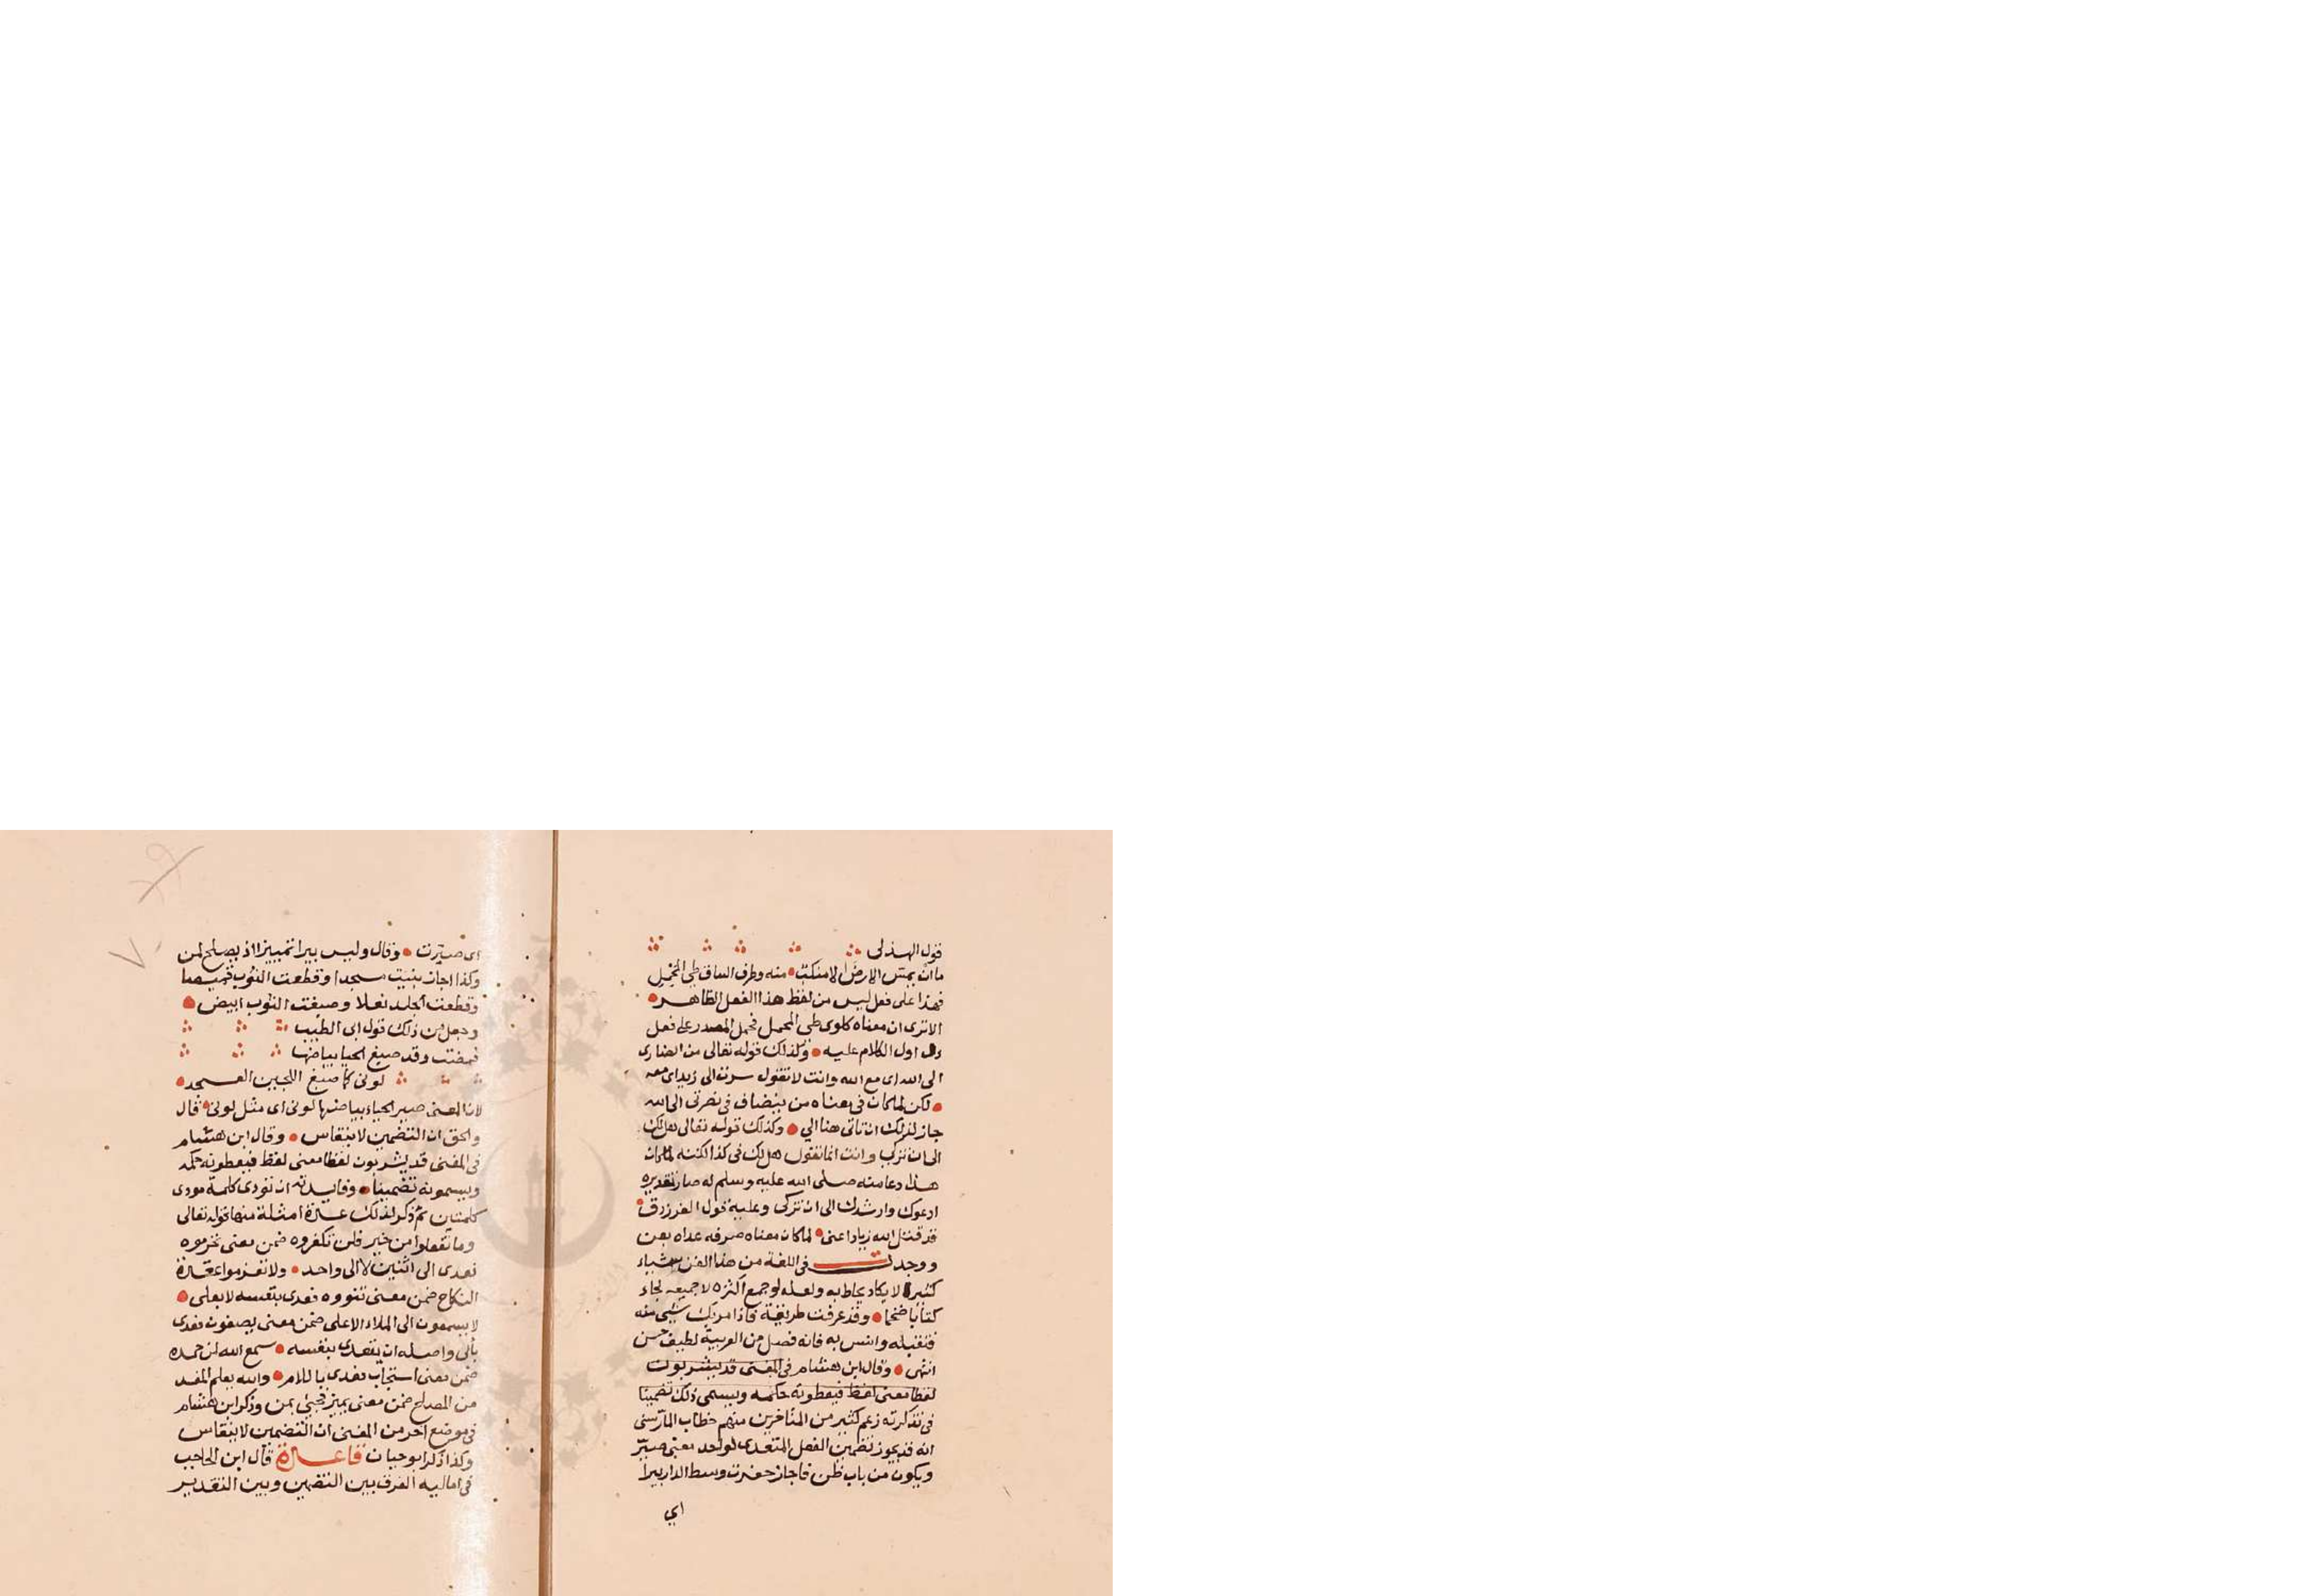 قول الهذلى
ما ان يمس الارض الا منكب منه وطرف الساق طي المحمل
فهذا على فعل ليس من لفظ هذا الفعل الظاهر
الا ترى ان معناه كلوى طى المحمل فحمل المصدر على فعل
دل اول الكلام عليه وكذلك قوله تعالى من انصارى
الى الله اى مع الله وانت لا تقول سرت الى زيد اى معه
لكن لما كان فى معناه من ينضاف فى نصرتى الى الله
جاز لذلك ان تاتى هنا الى وكذلك قوله تعالى هل لك
الى ان تزكى وانت انما تقول هل لك فى كذا لكنه لما كان
هذا دعا منه صلى الله عليه وسلم له صار تقديره
ادعوك وارشدك الى ان تزكى وعليه قول الفرزدق
قد قتل الله زيادا عنى لما كان معناه صرفه عداه بعن
ووجدت فى اللغة من هذا الفن شياء
كثيرا لا يكاد يحاط به ولعله لو جمع اكثره لا جميعه لجاء
كتابا ضخما وقد عرفت طريقة فاذا مر بك شيئ منه
فتقبله وانس به فانه فصل من العربية لطيف حسن
انتهى وقال ابن هشام فى المغنى قد يشربون
لفظا معنى لفظ فيعطونه حكمه ويسمى ذلك تضمينا
فى تذكرته زعم كثير من المتاخرين منهم خطاب الماردى
انه قد يجوز تضمين الفعل المتعدى لواحد معنى صير
ويكون من باب ظن فاجاز حفرت وسط الدار بيرا
اي
اى صيرت وقال وليس بيرا تمييزا اذ يصلح لمن
وكذا اجاز بنيت مسجدا وقطعت الثوب قميصا
وقطعت الجلد نعلا وصبغت الثوب ابيض
وجعل من ذلك قول ابى الطيب
فمضت وقد صبغ الحيا بياضها
لونى كما صبغ اللجين العسجد
لان المعنى صير الحياء بياضها لونى اى مثل لونى قال
والحق ان التضمين لا ينقاس وقال ابن هشام
فى المغنى قد يشربون لفظا معنى لفظ فيعطونه حكمه
ويسمونه تضمينا وفايدته ان تودى كلمة مودى
كلمتين ثم ذكر لذلك عدة امثلة منها قوله تعالى
وما تفعلوا من خير فلن تكفروه ضمن معنى تحرموه
تعدى الى اثنين لا الى واحد ولا تعزموا عقدة
النكاح ضمن معنى تنووه فعدى بنفسه لا بعلى
لا يسمعون الى الملاء الاعلى ضمن معنى يصغون فعدى
بالى واصله ان يتعدى بنفسه سمع الله لمن حمده
ضمن معنى استجاب فعدى باللام والله يعلم المفسد
من المصلح ضمن معنى يميز فجيئ بمن وذكر ابن هشام
فى موضع اخر من المغنى ان التضمين لا ينقاس
وكذا ذكر ابو حيان قاعدة قال ابن الحاجب
فى اماليه الفرق بين التضمين وبين التقدير